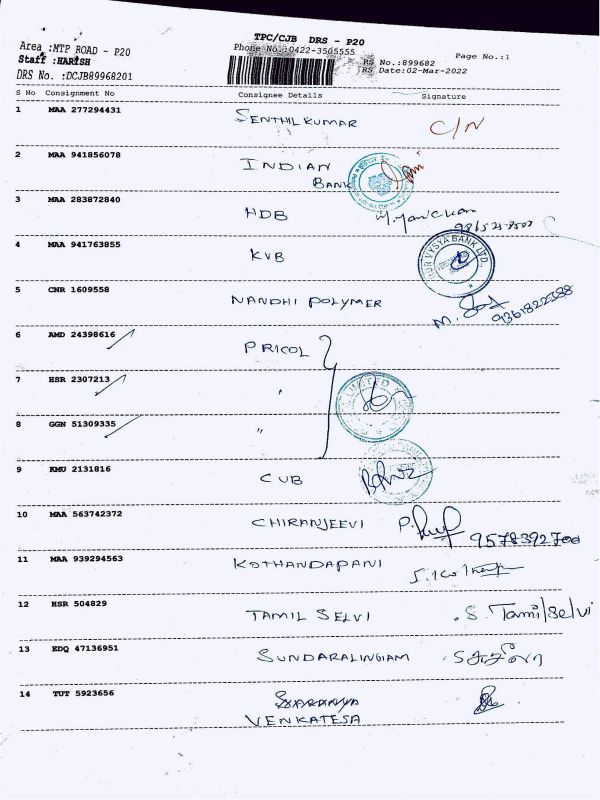 TPC/CJB DRS - P20
Area :MTP ROAD - P20
Phone No.:0422-3505555
Page No.:1
Staff :HARISH
RS No.:899682
DRS No. :DCJB89968201
RS Date:02-Mar-2022
S No Consignment No Consignee Details Signature
1 MAA 277294431 SENTHIL KUMAR C/N
2 MAA 941856078 INDIAN
BANK
3 MAA 283872840 HDB
4 MAA 941763855 KVB
VYSYA BANK LTD.
5 CNR 1609558 NANDHI POLYMER
9361822588
6 AMD 24398616 PRICOL
7 HSR 2307213 "
8 GGN 51309335 "
9 KMU 2131816 CUB
10 MAA 563742372 CHIRANJEEVI
9578392700
11 MAA 939294563 KOTHANDAPANI
12 HSR 504829 TAMIL SELVI S. Tamilselvi
13 KDQ 47136951 SUNDARALINGAM
14 TUT 5923656
VENKATESA